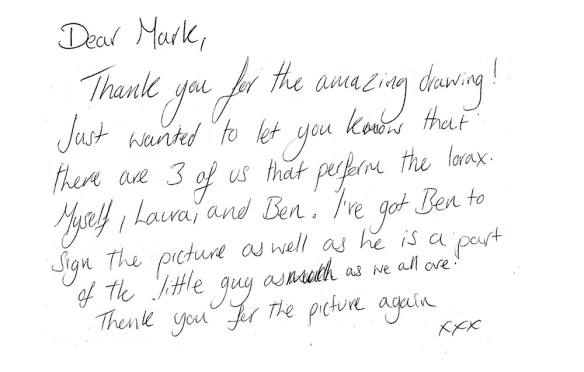 Dear Mark,
Thank you for the amazing drawing!
Just wanted to let you know that
there are 3 of us that perform the lorax.
Myself, Laura, and Ben. I've got Ben to
Sign the picture as well as he is a part
of the little guy as much as we all are.
Thank you for the picture again
xxx